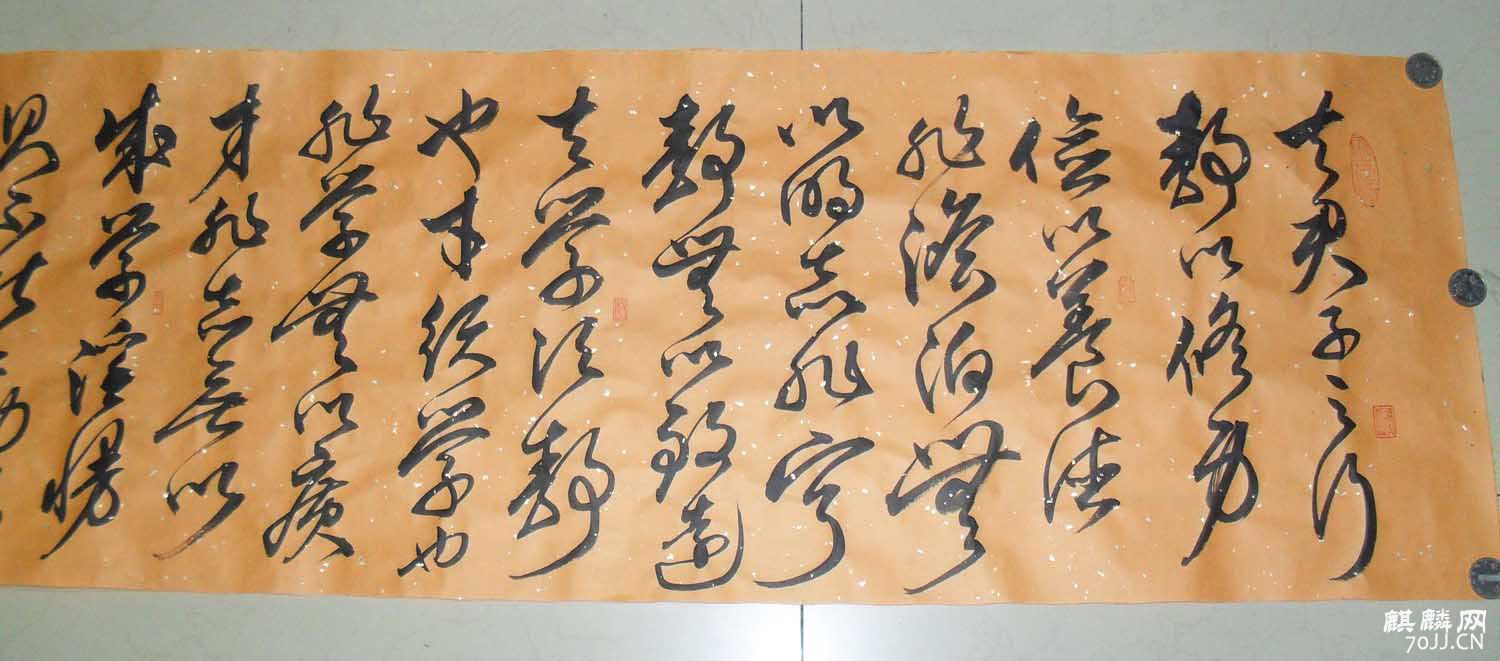 夫君子之行
静以修身
俭以养德
非澹泊無
以明志非宁
静無以致遠
夫学须静
也才须学也
非学無以广
才非志无以
成学淫慢
麒麟网
70JJ.CN